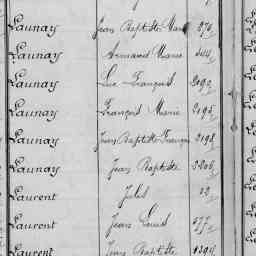 Launay Jean Baptiste Marie 276
Launay Armand Marie
Launay Luc François 2090
Launay François Marie 2195
Launay Jean Baptiste François 2198
Launay Jean Baptiste 3206
Laurent Jules 22
Laurent Jean Louis 577
Laurent Jean Baptiste 1394